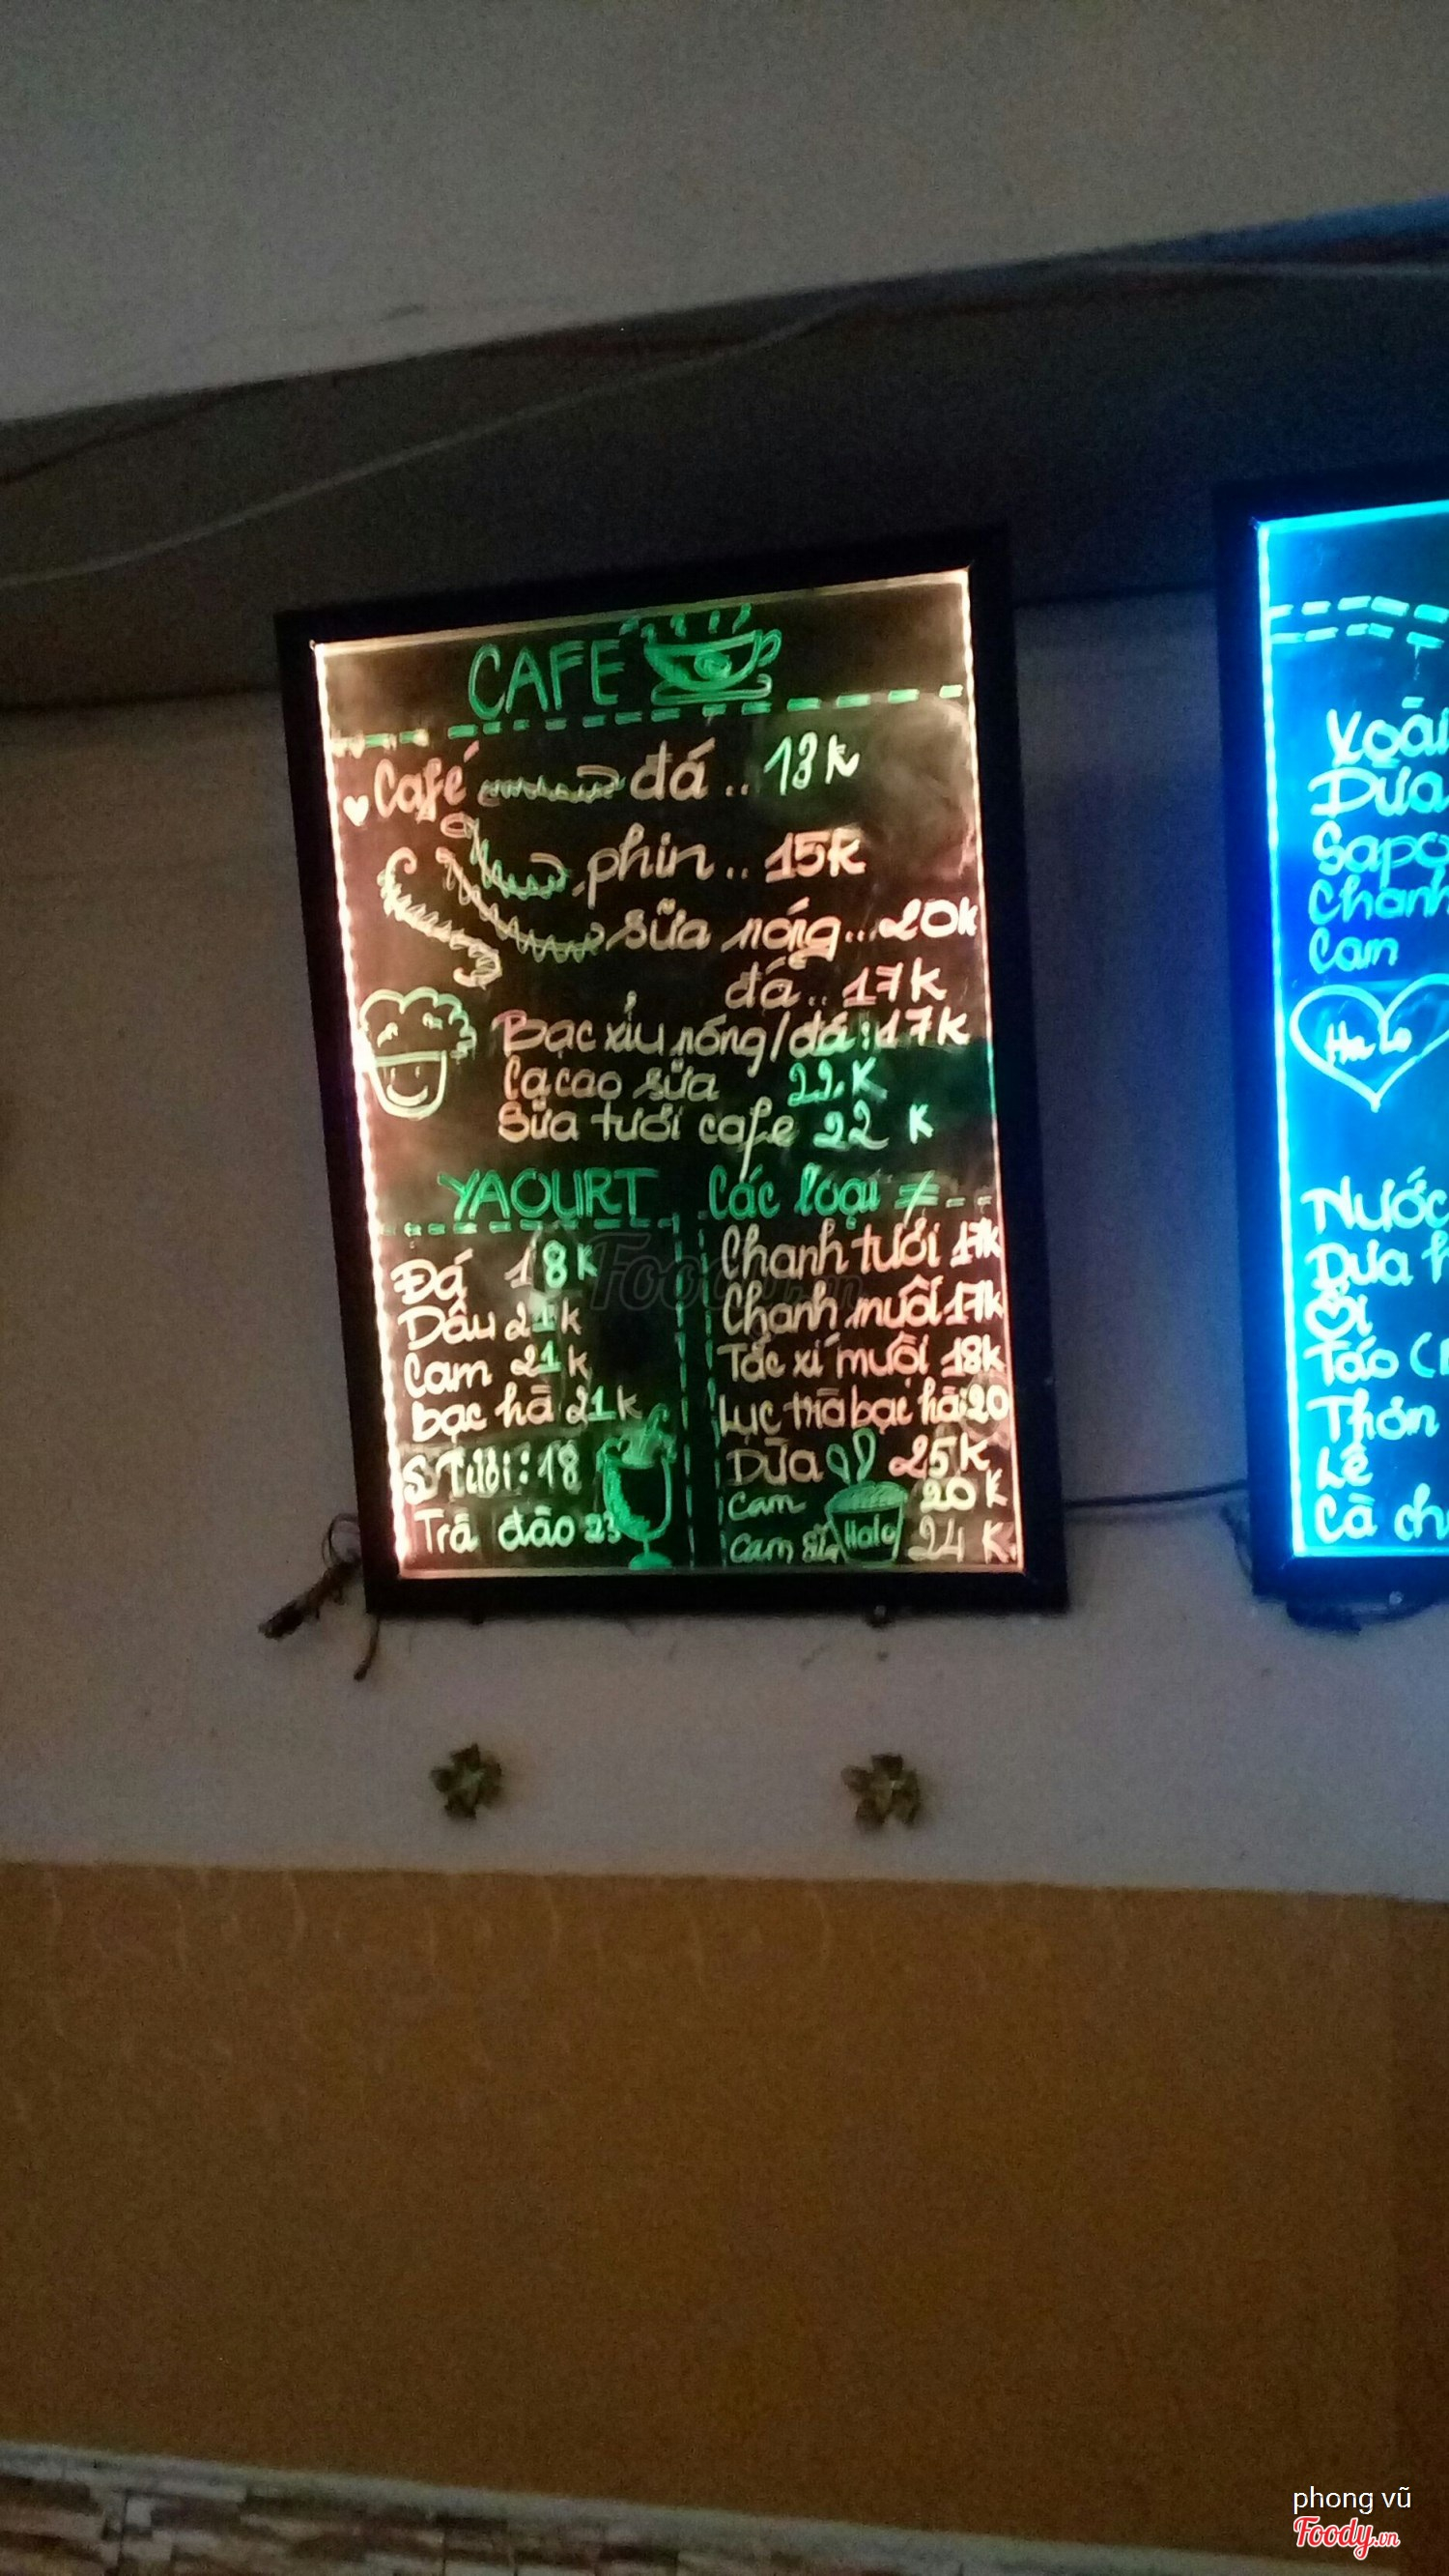 CAFÉ
Café đá .. 13k
phin .. 15k
sữa nóng ... 20k
đá .. 17k
Bạc xỉu nóng/đá: 17k
Cacao sữa 22.K
Sữa tươi cafe 22 K
YAOURT
Đá 18K
Dâu 21k
Cam 21k
bạc hà 21k
S Tươi: 18
Trà đào 23
Các loại ≠
Chanh tươi 17k
Chanh muối 17k
Tắc xí muội 18k
Lục trà bạc hà: 20
Dừa 25K
Cam 20K
Cam 24 K
Halo
Dứa
Chanh
Cam
Ha Lo
Dưa h
Ổi
Táo (
Thơm
Lê
Cà ch
Foody.vn
phong vũ
Foody.vn